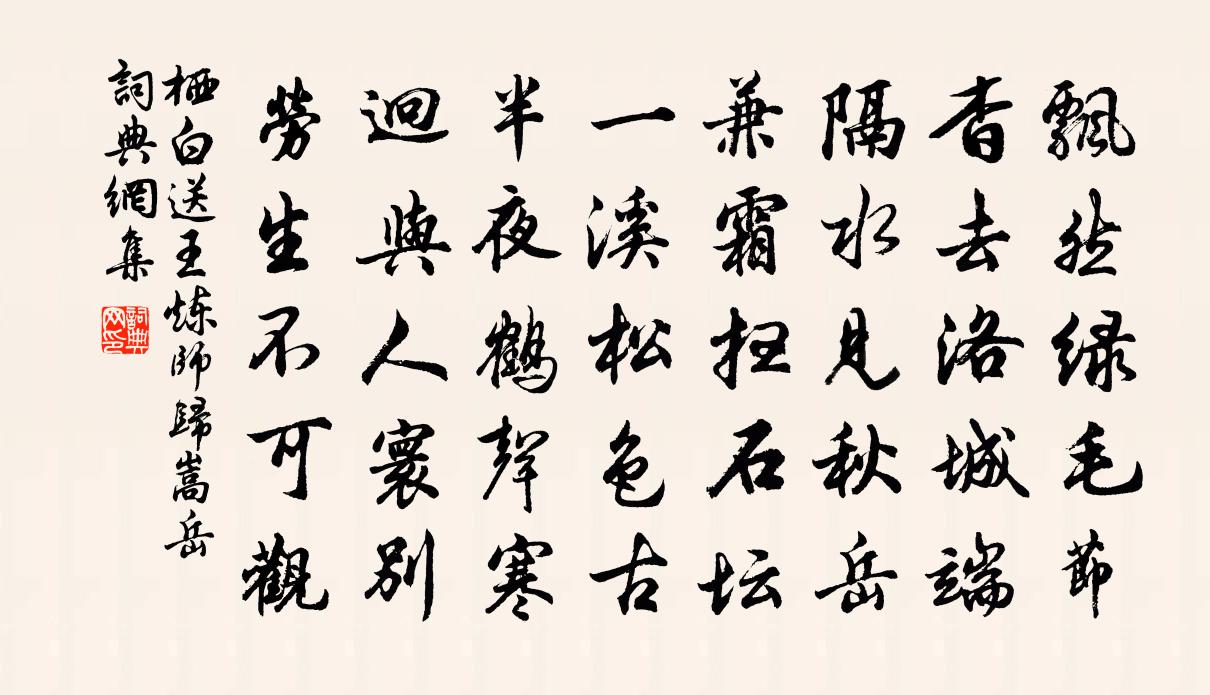 飄然绿毛節
杳去洛城端
隔水見秋岳
兼霜扫石坛
一溪松色古
半夜鶴聲寒
迴與人寰別
勞生不可觀
栖白送王炼師歸嵩岳
詞典網集
詞典网印